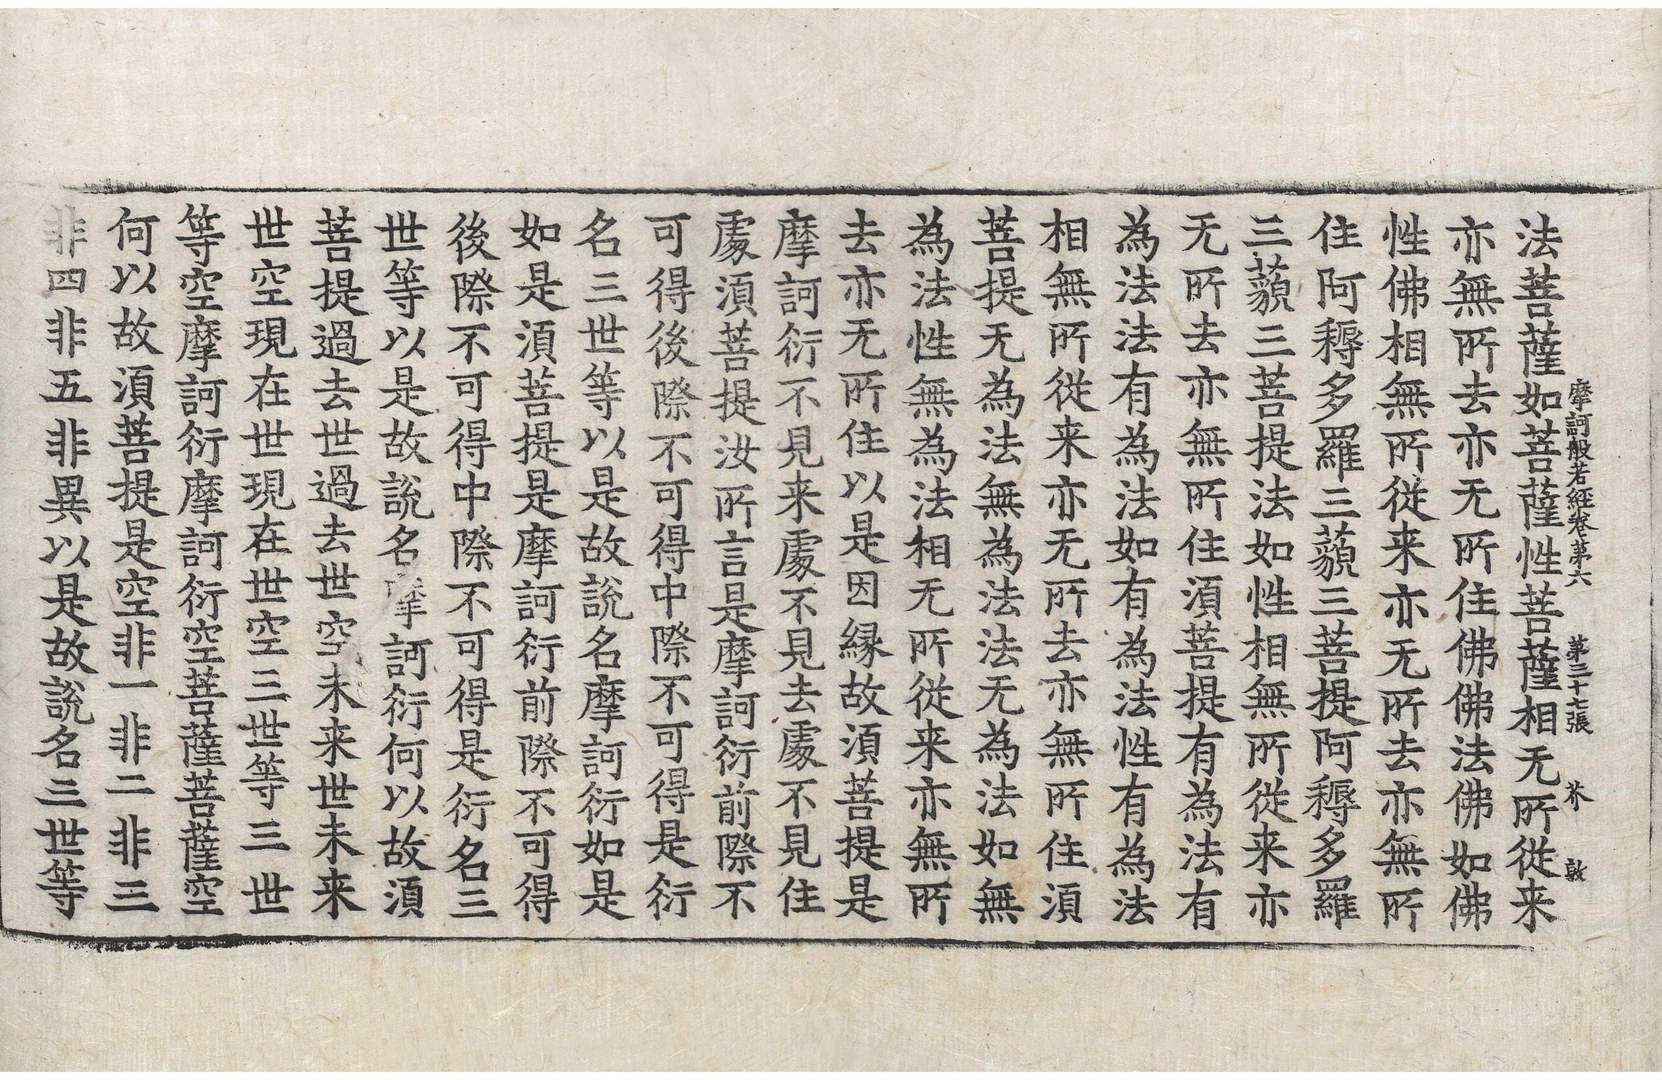 摩訶般若經卷第六 第三十七張 芥 敦
法菩薩如菩薩性菩薩相无所從来
亦無所去亦无所住佛佛法佛如佛
性佛相無所從来亦无所去亦無所
住阿耨多羅三藐三菩提阿耨多羅
三藐三菩提法如性相無所從来亦
无所去亦無所住湏菩提有為法有
為法法有為法如有為法性有為法
相無所從来亦无所去亦無所住湏
菩提无為法無為法法无為法如無
為法性無為法相无所從来亦無所
去亦无所住以是因縁故湏菩提是
摩訶衍不見来處不見去處不見住
處湏菩提汝所言是摩訶衍前際不
可得後際不可得中際不可得是衍
名三世等以是故說名摩訶衍如是
如是湏菩提是摩訶衍前際不可得
後際不可得中際不可得是衍名三
世等以是故說名摩訶衍何以故湏
菩提過去世過去世空未来世未来
世空現在世現在世空三世等三世
等空摩訶衍摩訶衍空菩薩菩薩空
何以故湏菩提是空非一非二非三
非四非五非異以是故說名三世等